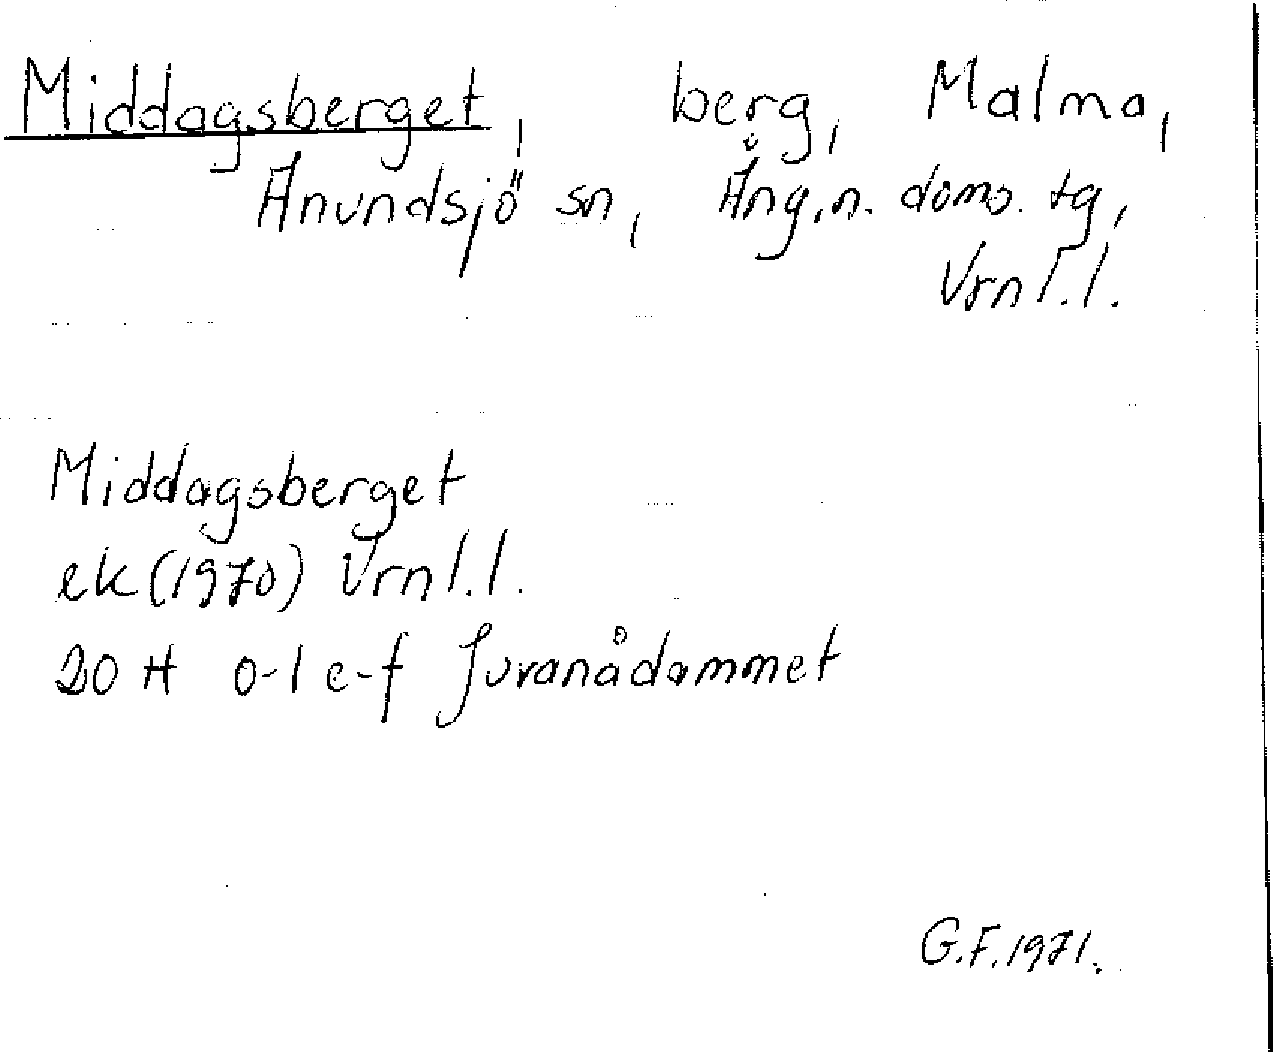 Middagsberget, berg, Malmo,
Anundsjö sn, Ång.n. doms. tg,
Vrnl.l.
Middagsberget
ek (1970) Vrnl.l.
20 H o-l e-f Juvanådammet
G.F. 1971.